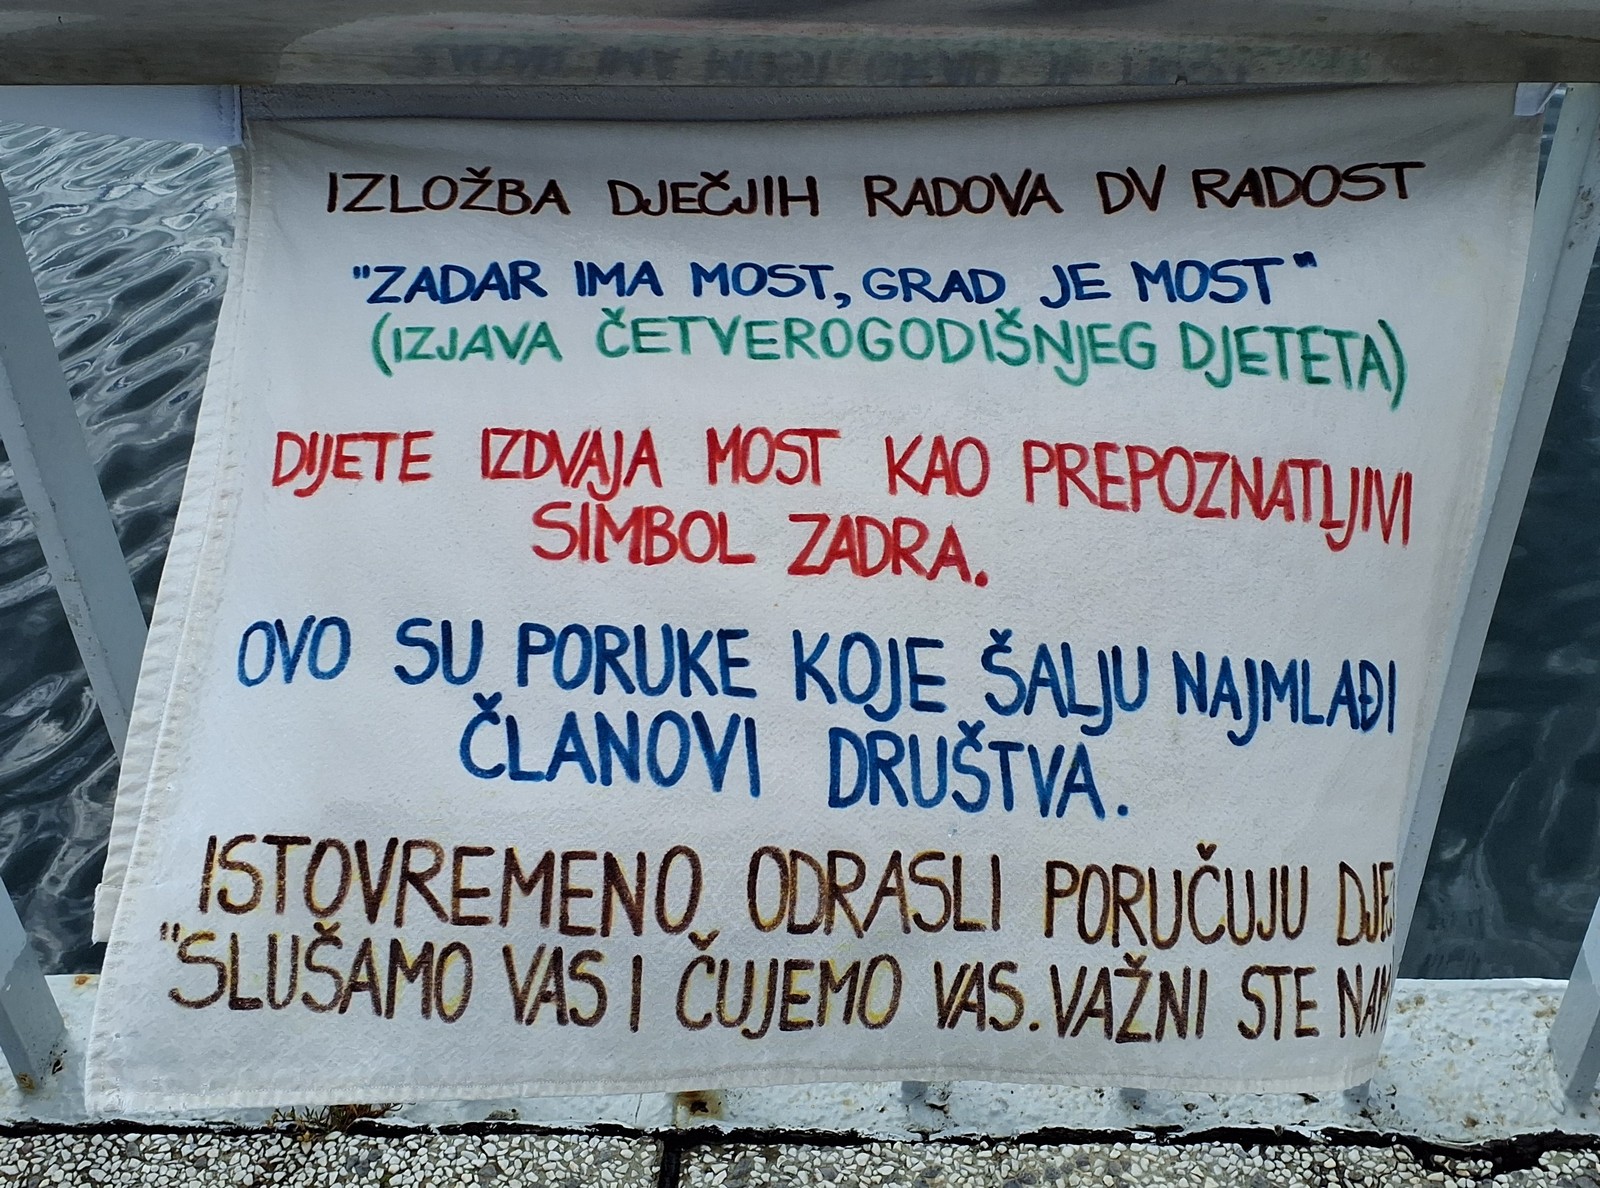 IZLOŽBA DJEČJIH RADOVA DV RADOST
"ZADAR IMA MOST, GRAD JE MOST"
(IZJAVA ČETVEROGODIŠNJEG DJETETA)
DIJETE IZDVAJA MOST KAO PREPOZNATLJIVI
SIMBOL ZADRA.
OVO SU PORUKE KOJE ŠALJU NAJMLAĐI
ČLANOVI DRUŠTVA.
ISTOVREMENO ODRASLI PORUČUJU
"SLUŠAMO VAS I ČUJEMO VAS. VAŽNI STE NAM